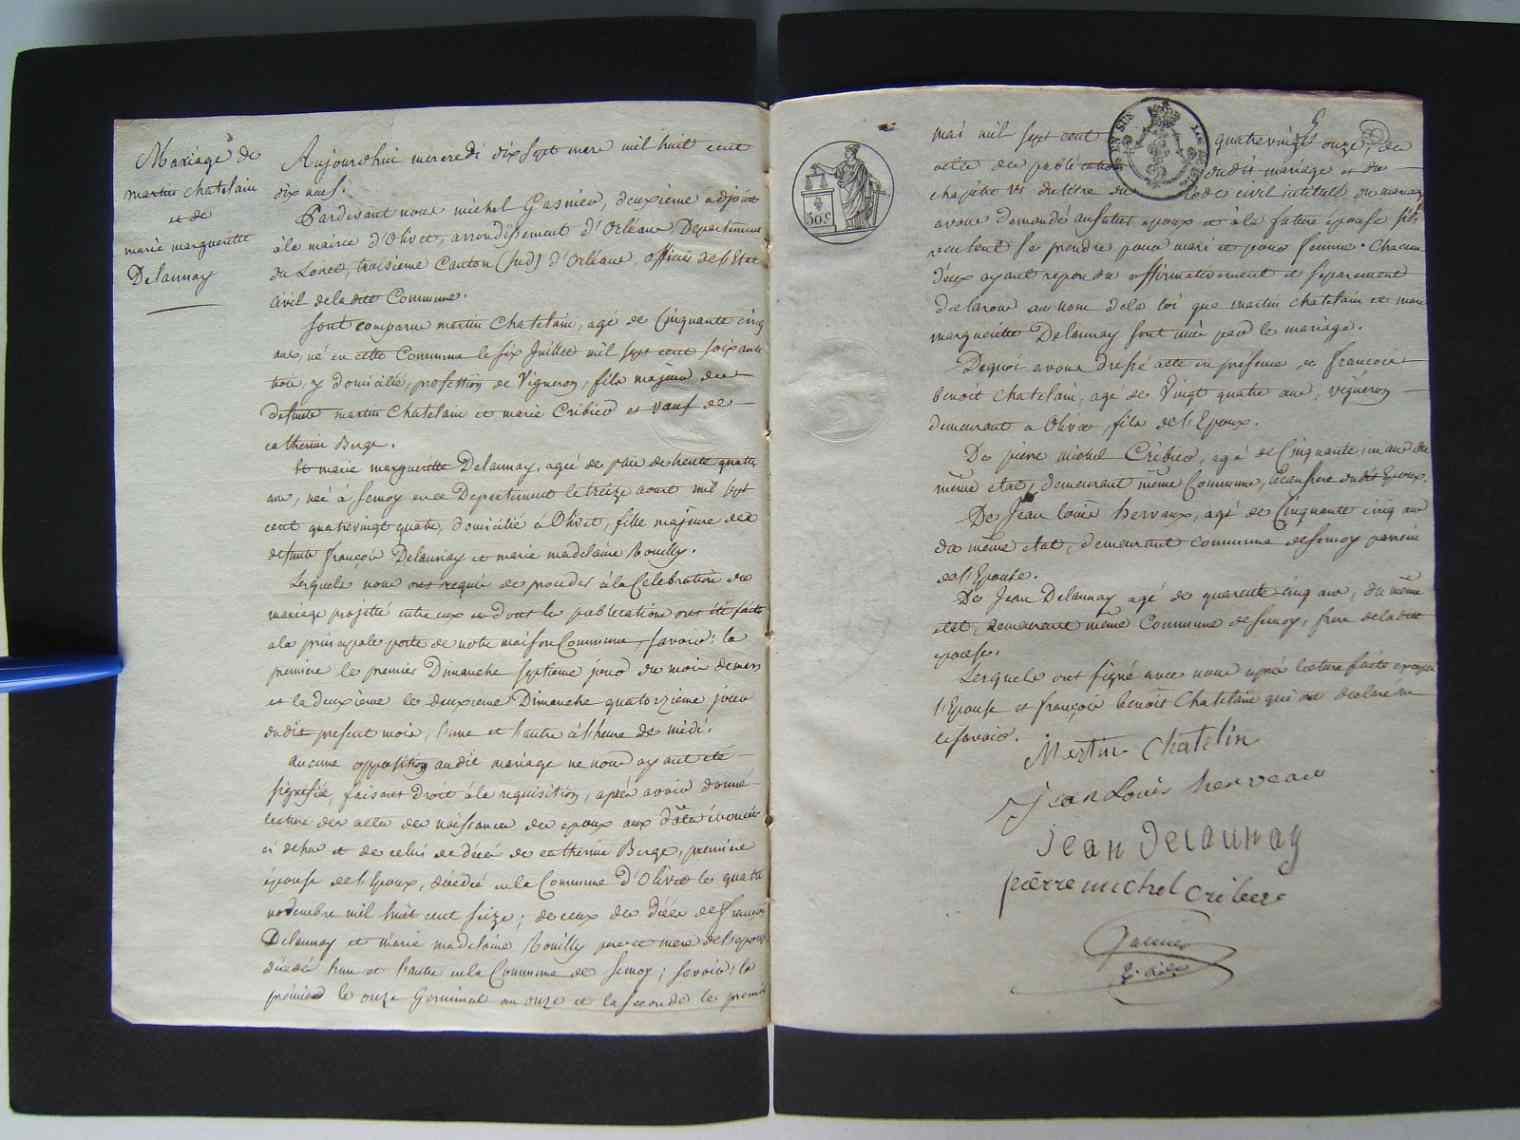 Mariage de
martin chatelain
et de
marie margueritte
Delaunay
Aujourdhui mercredi dix sept mars mil huit cent
dix neuf.
Pardevant nous michel Gasnier, deuxième adjoint
à la mairie d'Olivet, arrondissement d'Orléans Departement
du Loiret, troisieme Canton (sud) d'Orléans, officier de l'Etat
Civil de ladite Commune.
Sont comparu martin Chatelain, agé de Cinquante cinq
ans, né en cette Commune le six Juillet mil sept cent soixante
trois, y domicilié, profession de Vigneron, fils majeur des
defunts martin Chatelain et marie Cribier et veuf de
catherine Berge.
Et marie margueritte Delaunay, agée de trente quatre
ans, née à Semoy en ce Departement le treize aout mil sept
cent quatrevingt quatre, domicilié à Olivet, fille majeure des
defunts françois Delaunay et marie madelaine Rouilly.
Lesquels nous ont requis de proceder à la Celebration du
mariage projetté entre eux et dont les publications ont été faites
a la principale porte de notre maison Commune, savoir: la
premiere le premier Dimanche septieme jour du mois de mars
et la deuxième le deuxieme Dimanche quatorzième jour
dudit present mois, l'une et l'autre à l'heure de midi.
Aucune opposition audit mariage ne nous ayant été
signifié, faisant droit à la requisition, après avoir donné
lecture des actes de naissances des epoux aux dates énoncés
ci dessus et de celui de décès de catherine Berge, premiere
épouse de l'Epoux, décédé en la Commune d'Olivet le quatre
novembre mil huit cent seize; de ceux des décès de françois
Delaunay et marie madelaine Rouilly pere et mere de l'epouse
décédé l'un et l'autre en la Commune de Semoy; savoir: le
premier le onze Germinal an onze et la seconde le premier
mai mil sept cent quatrevingt onze, des
actes de publications dudit mariage et du
chapitre VI du titre du Code civil intitulé du mariage
avons demandé au futur epoux et à la future épouse s'ils
veulent se prendre pour mari et pour femme. Chacun
d'eux ayant repondu affirmativement et separement
declarons au nom de la loi que martin chatelain et marie
margueritte Delaunay sont unis par le mariage.
Dequoi avons dressé acte en presence de francois
benoit chatelain, agé de Vingt quatre ans, vigneron
demeurant a Olivet, fils de l'Epoux.
De pierre michel Cribier, agé de Cinquante un ans du
même etat, demeurant même Commune, beaufrere dudit Epoux.
De Jean louis hervaux, agé de Cinquante cinq ans
du même etat, demeurant commune de Semoy parrain
de l'Epouse.
De Jean Delaunay agé de quarente cinq ans, du même
etat, demeurant même Commune de Semoy, frere de ladite
epouse.
Lesquels ont signé avec nous après lecture faite excepté
l'Epouse et françois benoit Chatelain qui ont declaré ne
le savoir.
Martin Chatelin
jean Louis herveau
jean delaunay
pierre michel cribier
Gasnier
50c
EN SUS